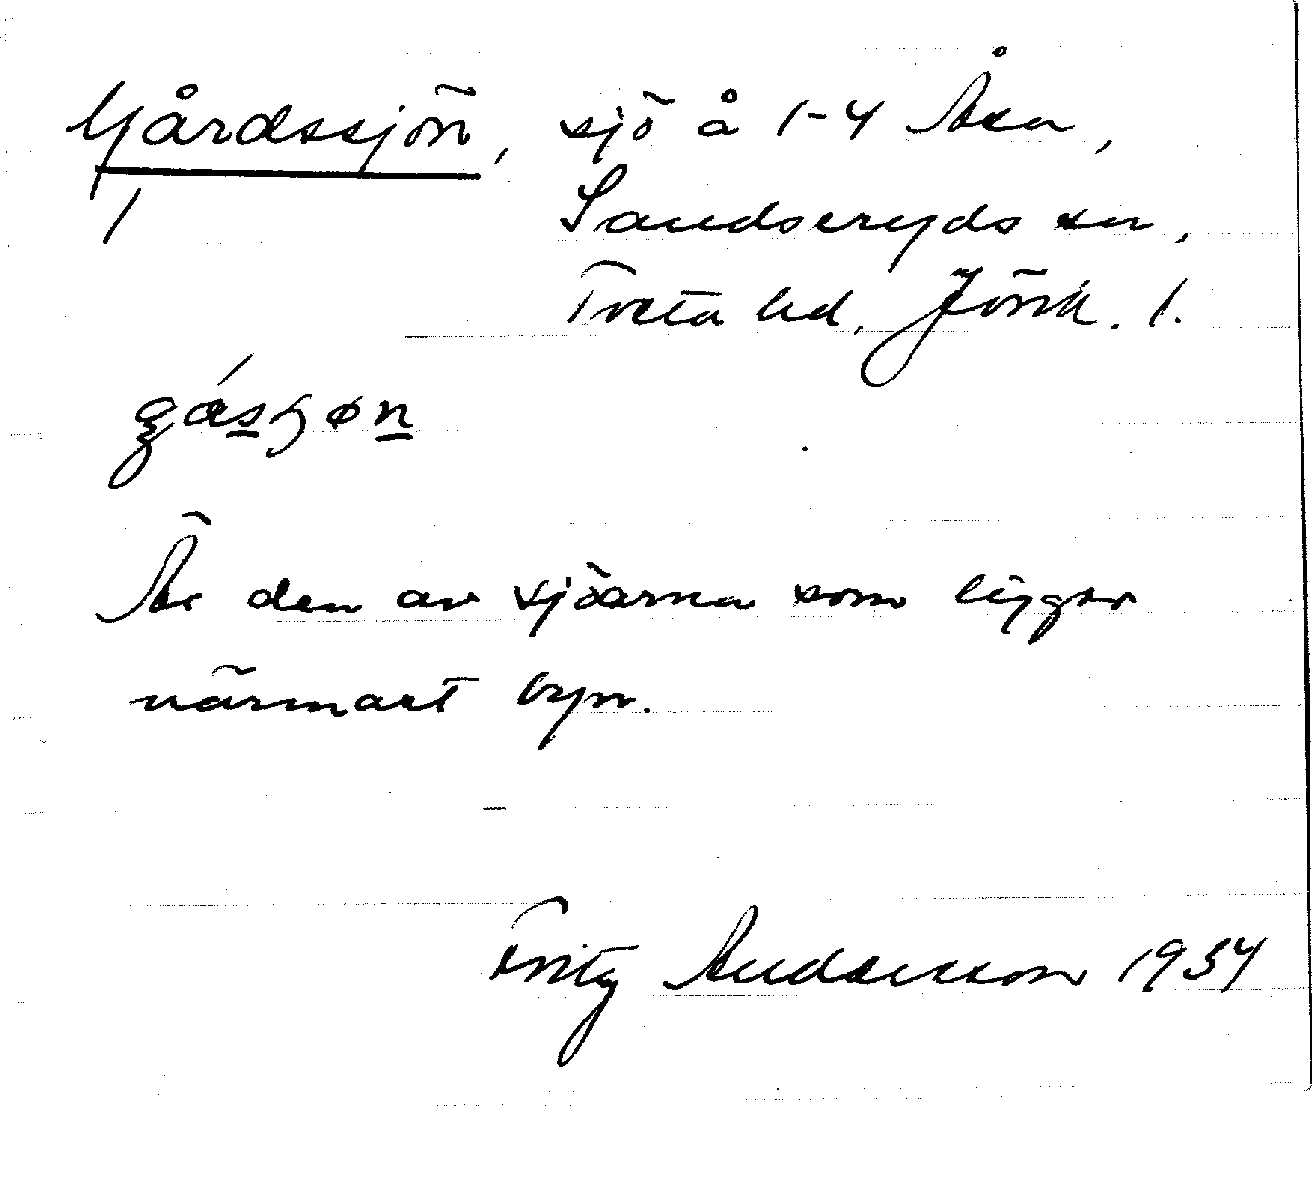 Gårdssjön, sjö å 1-4 Åsa,
Sandseryds sn,
Tveta hd, Jönk. l.
Är den av sjöarna som ligger
närmast byn.
Fritz Andersson 1934